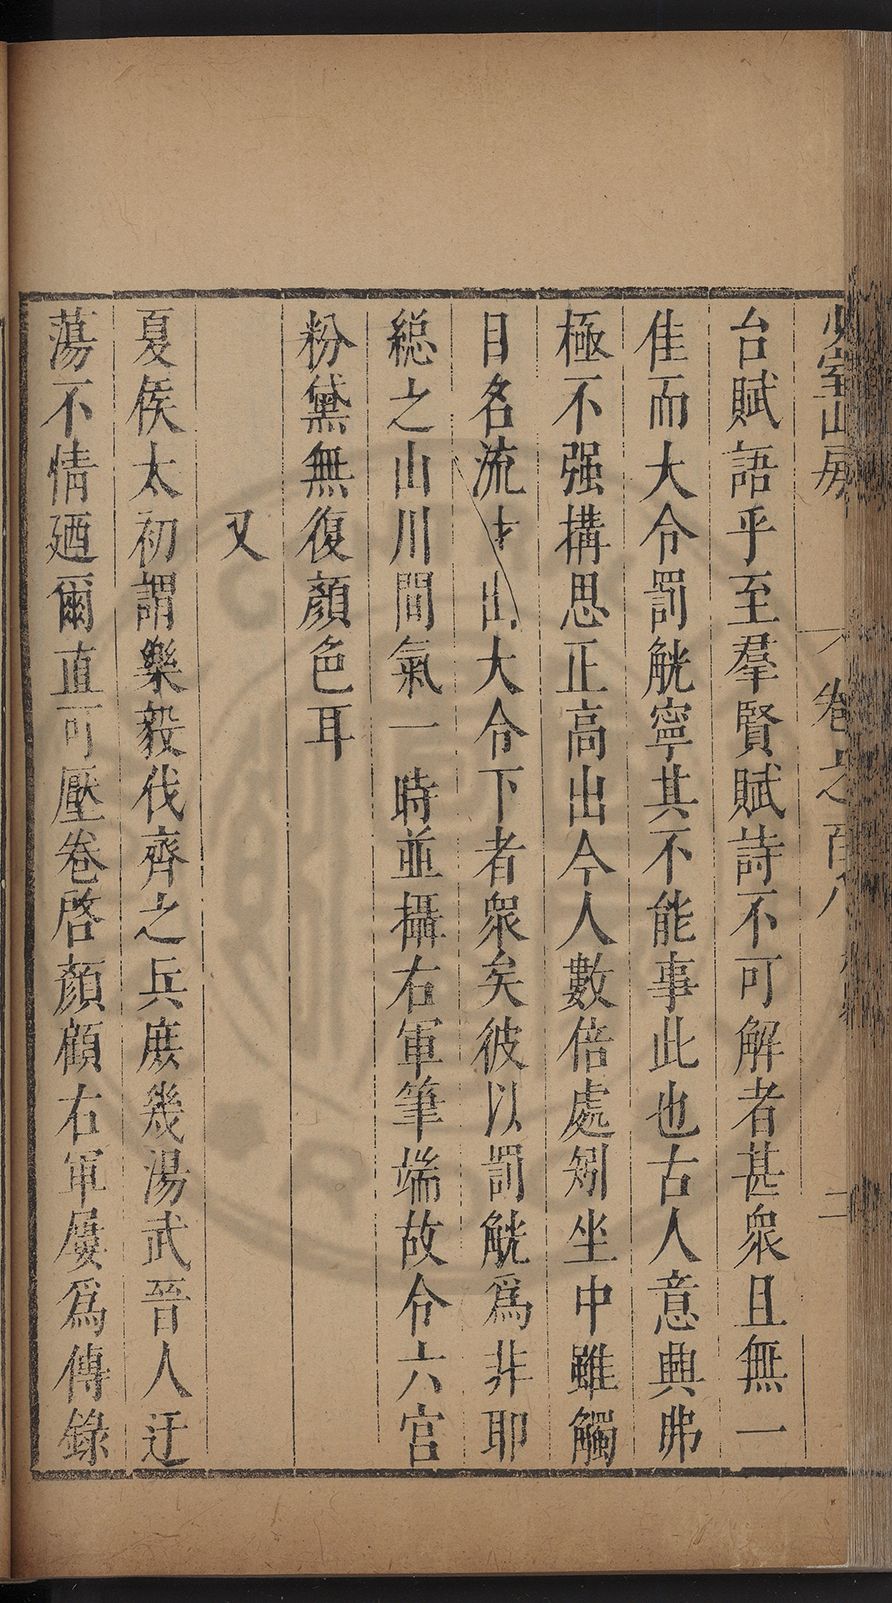 少室山房 卷之百八 二
台賦語乎至羣賢賦詩不可解者甚衆且無一
佳而大令罰觥寧其不能事此也古人意興弗
極不强搆思正高出今人數倍處矧坐中雖觸
目名流才出大令下者衆矣彼以罰觥爲非耶
緫之山川間氣一時並攝右軍筆端故令六宮
粉黛無復顏色耳
又
夏侯太初謂樂毅伐齊之兵庶幾湯武晉人迂
蕩不情廼爾直可壓卷啓顏顧右軍屢爲傳錄